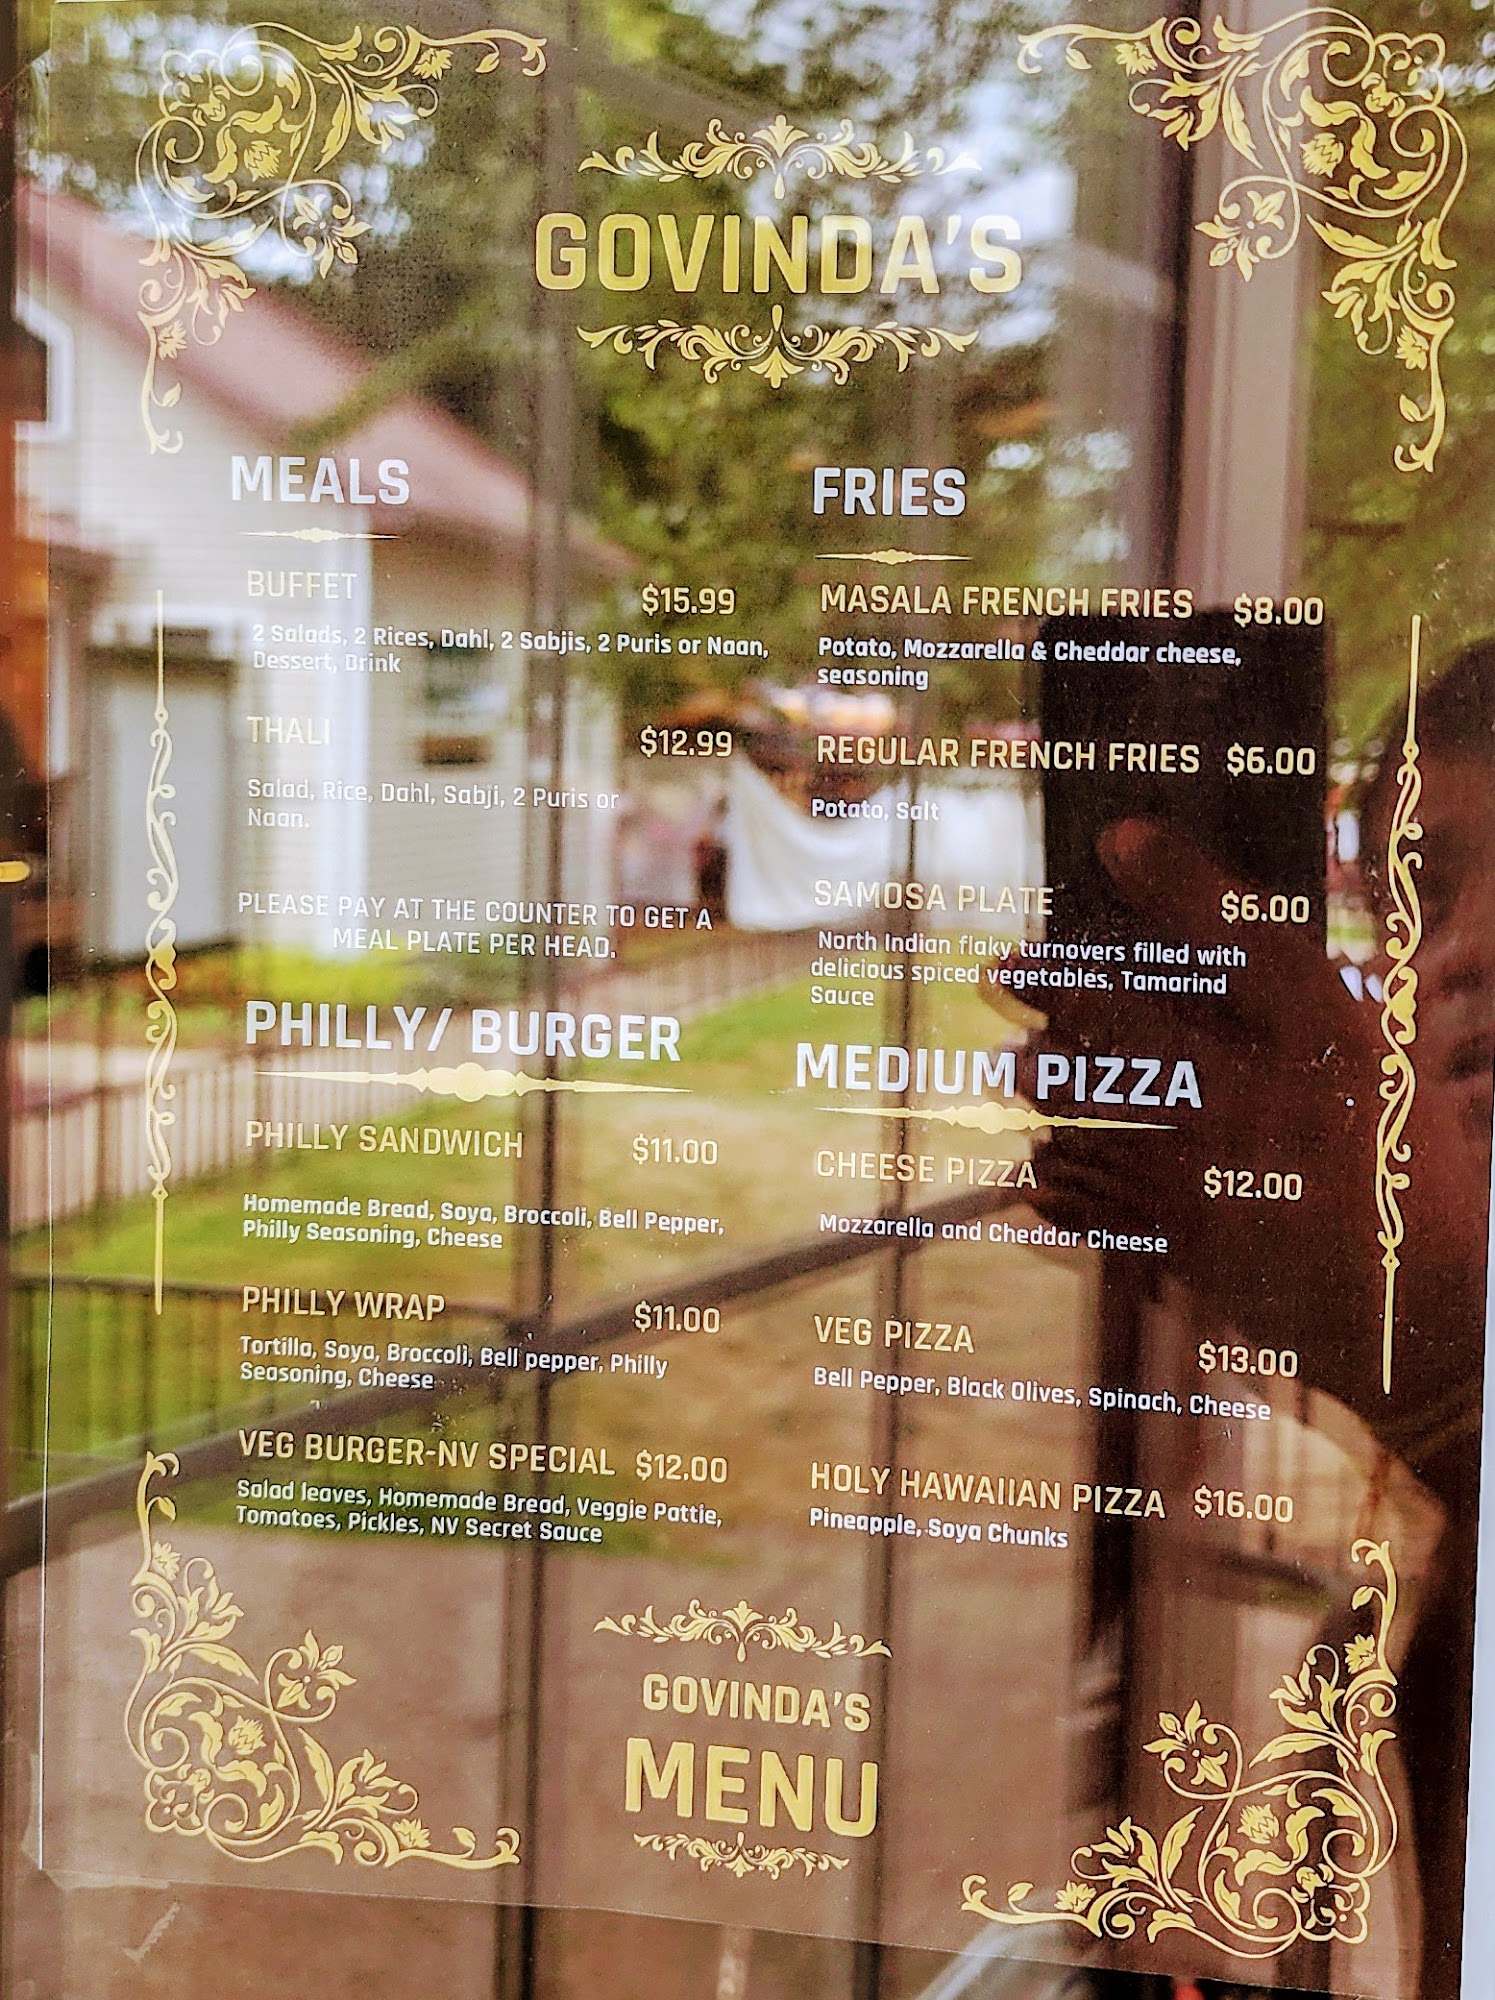 GOVINDA'S
MEALS
BUFFET $15.99
2 Salads, 2 Rices, Dahl, 2 Sabjis, 2 Puris or Naan,
Dessert, Drink
THALI $12.99
Salad, Rice, Dahl, Sabji, 2 Puris or
Naan.
PLEASE PAY AT THE COUNTER TO GET A
MEAL PLATE PER HEAD.
PHILLY/ BURGER
PHILLY SANDWICH $11.00
Homemade Bread, Soya, Broccoli, Bell Pepper,
Philly Seasoning, Cheese
PHILLY WRAP $11.00
Tortilla, Soya, Broccoli, Bell pepper, Philly
Seasoning, Cheese
VEG BURGER-NV SPECIAL $12.00
Salad leaves, Homemade Bread, Veggie Pattie,
Tomatoes, Pickles, NV Secret Sauce
FRIES
MASALA FRENCH FRIES $8.00
Potato, Mozzarella & Cheddar cheese,
seasoning
REGULAR FRENCH FRIES $6.00
Potato, Salt
SAMOSA PLATE $6.00
North Indian flaky turnovers filled with
delicious spiced vegetables, Tamarind
Sauce
MEDIUM PIZZA
CHEESE PIZZA $12.00
Mozzarella and Cheddar Cheese
VEG PIZZA $13.00
Bell Pepper, Black Olives, Spinach, Cheese
HOLY HAWAIIAN PIZZA $16.00
Pineapple, Soya Chunks
GOVINDA'S
MENU